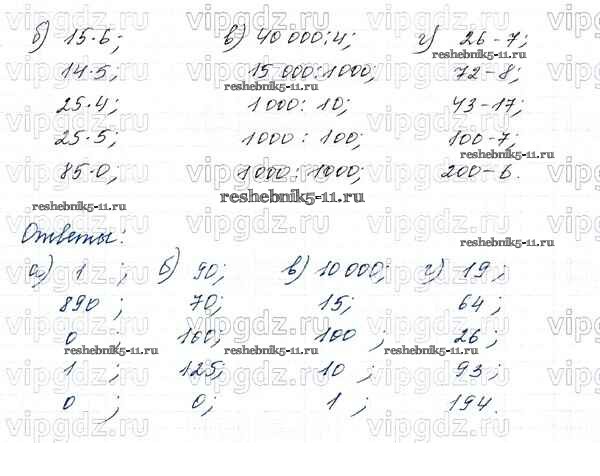 б) 15·6; в) 40 000:4; г) 26-7;
14·5; 15 000:1000; 72-8;
25·4; 1000:10; 43-17;
25·5; 1000:100; 100-7;
85·0; 1000:1000; 200-6.
Ответы:
а) 1; б) 90; в) 10 000; г) 19;
890; 70; 15; 64;
0; 100; 100; 26;
1; 125; 10; 93;
0; 0; 1; 194.
vipgdz.ru
reshebnik5-11.ru